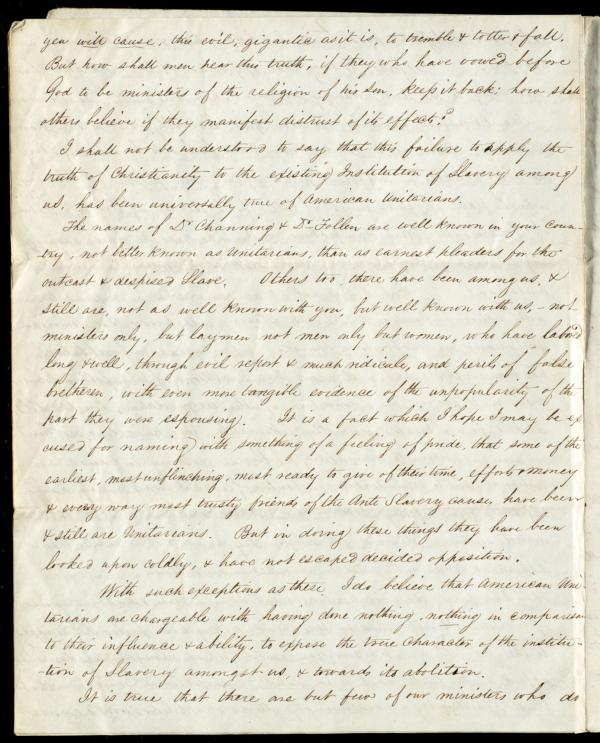 yea will cause, this evil, gigantic as it is, to tremble & totter & fall.
But how shall men hear this truth, if they who have vowed before
God to be ministers of the religion of his Son, keep it back; how shall
others believe if they manifest distrust of its effects?
I shall not be understood to say that this failure to apply the
truth of Christianity to the existing Institution of Slavery among
us, has been universally true of American Unitarians.
The names of Dr Channing & Dr Follen are well known in your coun-
-try, not better known as Unitarians, than as earnest pleaders for the
outcast & despised Slave. Others too, there have been among us, &
still are, not as well known with you, but well known with us, - not
ministers only, but laymen not men only but women, who have labord
long & well, through evil report & much ridicule, and perils of false
bretheren, with even more tangible evidence of the unpopularity of the
part they were espousing. It is a fact which I hope I may be ex
cused for naming with something of a feeling of pride, that some of the
earliest, most unflinching, most ready to give of their time, efforts & money
& every way most trusty friends of the Anti Slavery cause, have been
& still are Unitarians. But in doing these things they have been
looked upon coldly, & have not escaped decided opposition.
With such exceptions as these, I do believe that American Uni-
tarians are chargeable with having done nothing, nothing in comparison
to their influence & ability, to expose the true character of the institu-
-tion of Slavery amongst us, & towards its abolition.
It is true that there are but few of our ministers who do